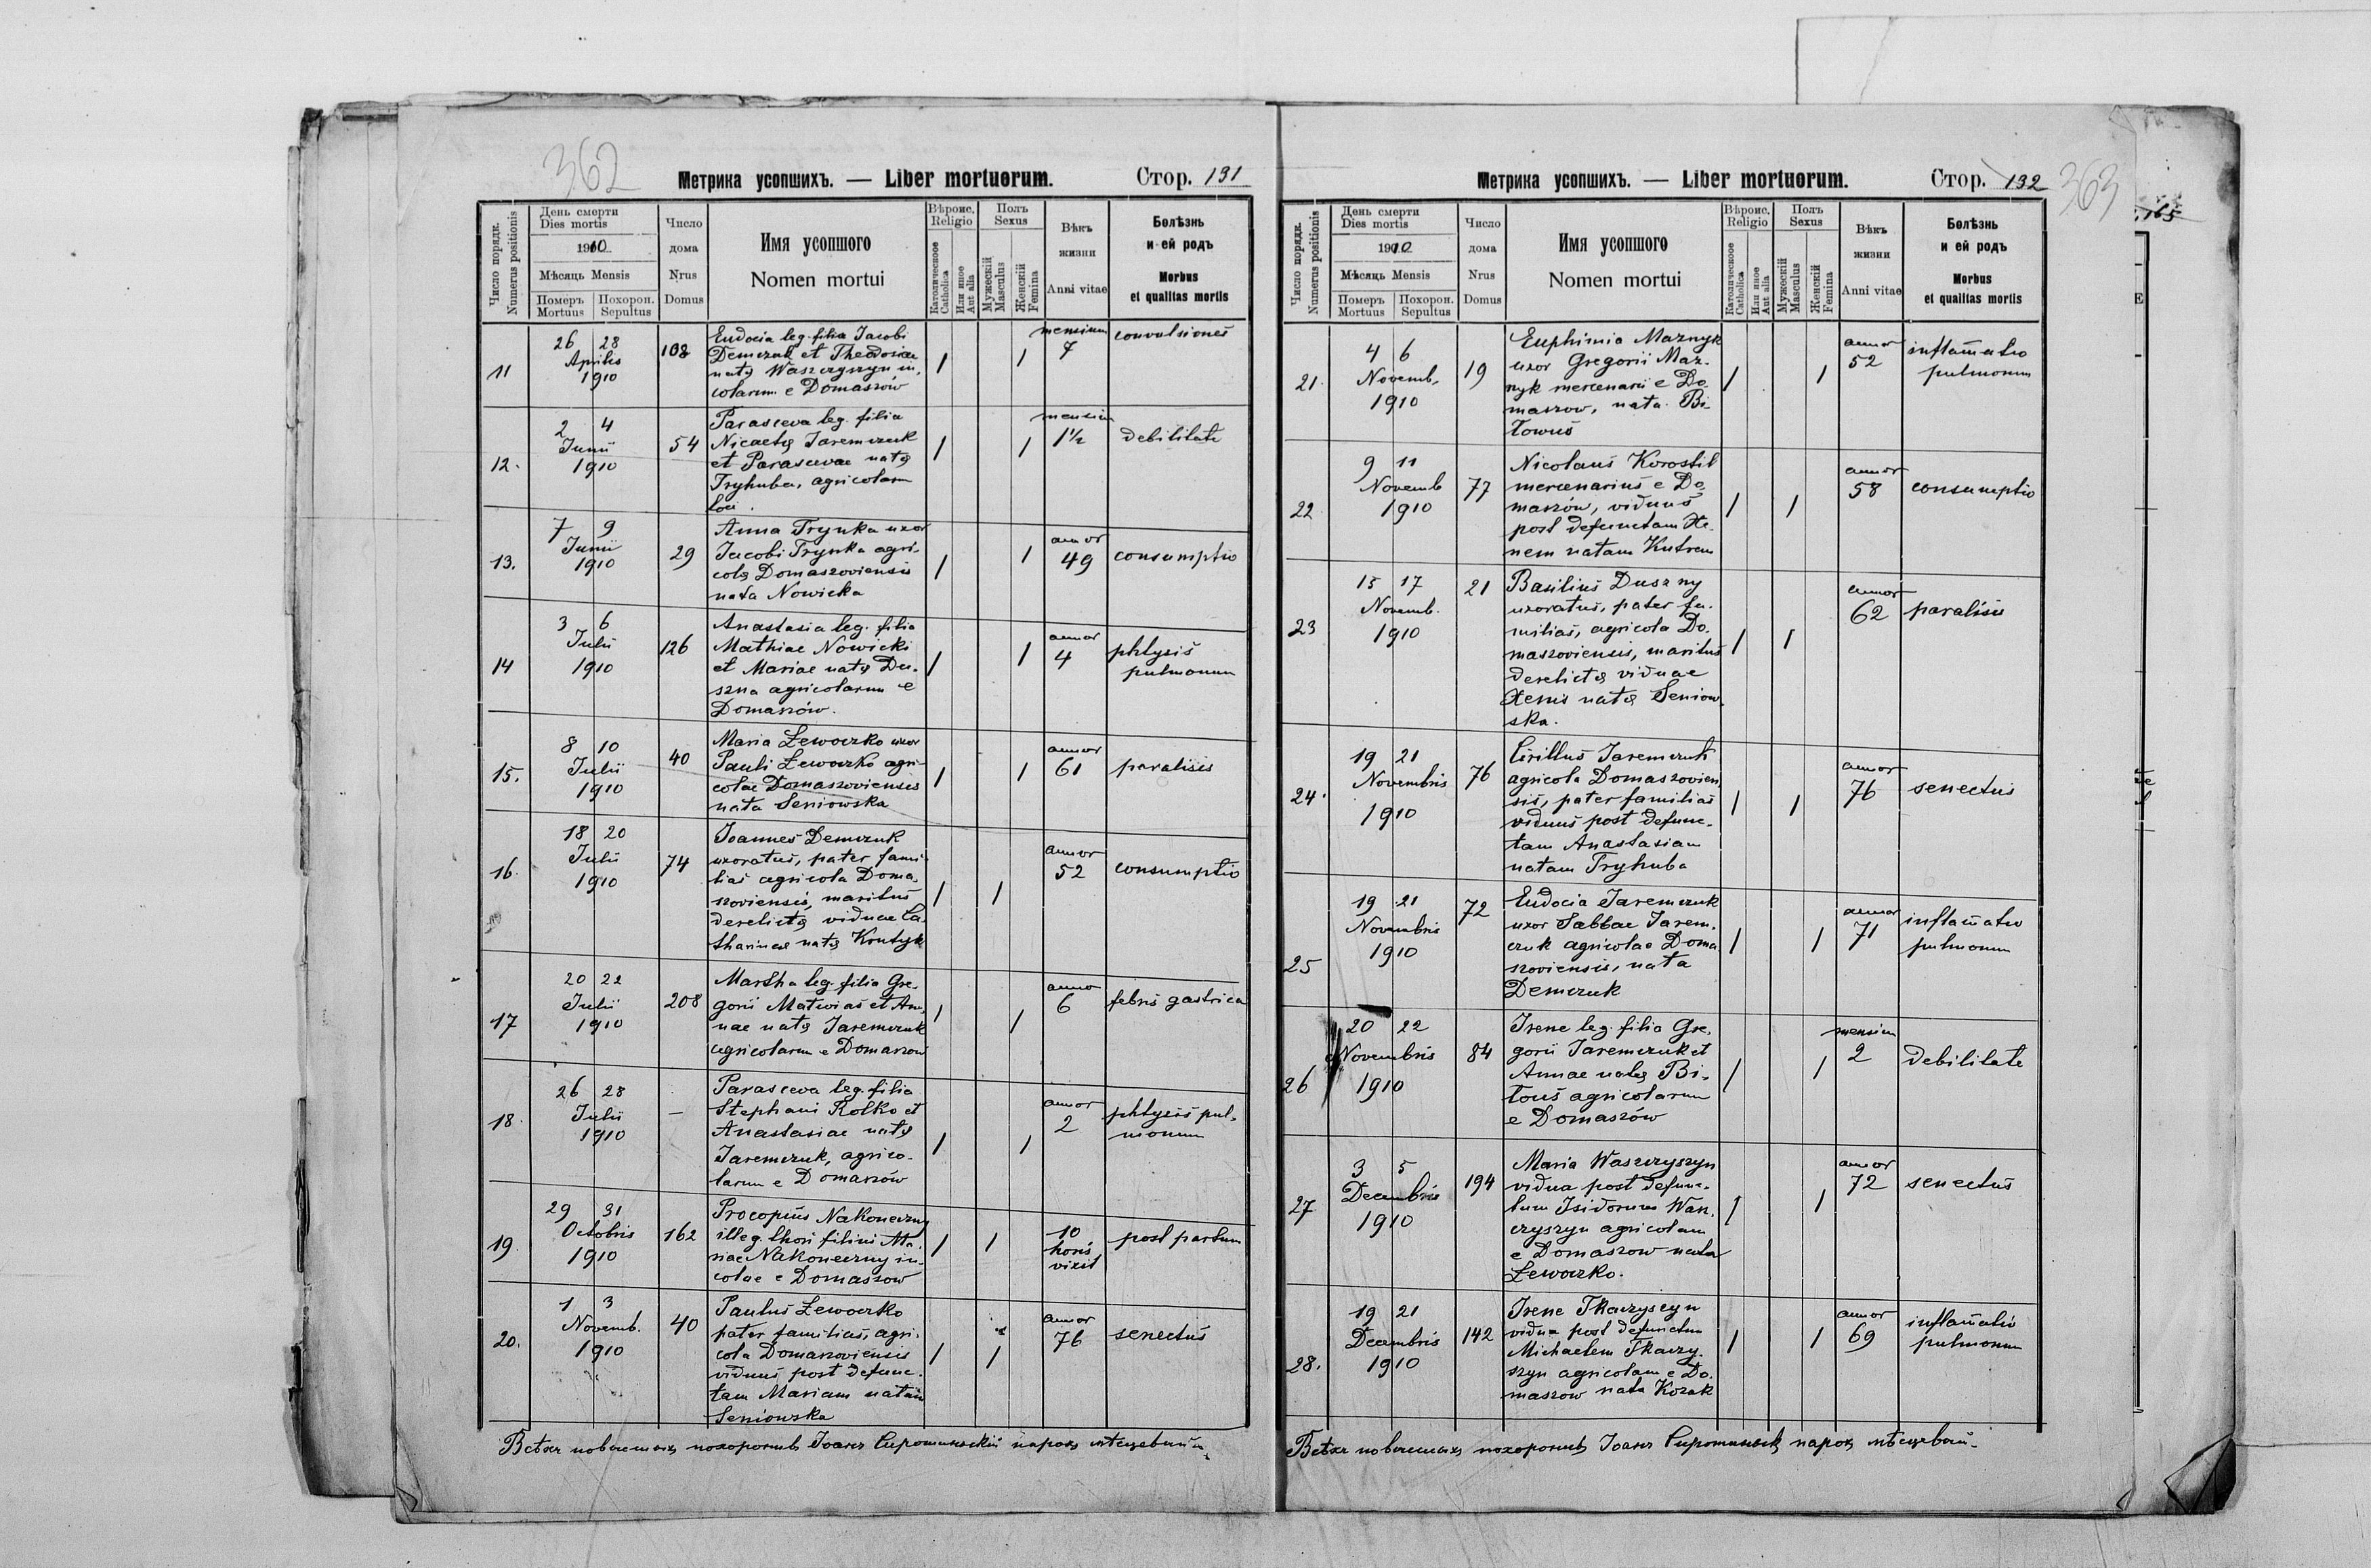 362
Метрика усопшихъ. — Liber mortuorum.
Стор. 131
Число порядк.
Numerus positionis
День смерти
Dies mortis
1910
Мѣсяць Mensis
Померъ
Mortuus
Похорон.
Sepultus
Число
дома
Nrus
Domus
Имя усопшого
Nomen mortui
Вѣроис.
Religio
Католическое
Catholica
Или иное
Aut alia
Полъ
Sexus
Мужескій
Masculus
Женскій
Femina
Вѣкъ
жизни
Anni vitae
Болѣзнь
и ей родъ
Morbus
et qualitas mortis
11
26 28
Aprilis
1910
108
Eudocia leg. filia Jacobi
Demczuk et Theodosiae
natę Waszczyszyn in-
colarum e Domaszów
1
1
mensium
7
convulsiones
12.
2 4
Junii
1910
54
Parasceva leg. filia
Nicaetę Jaremczuk
et Parascevae natę
Tryhuba, agricolarum
loci.
1
1
mensium
1½
debilitate
13.
7 9
Junii
1910
29
Anna Trynka uxor
Jacobi Trynka agri-
colę Domaszoviensis
nata Nowicka
1
1
annor
49
consumptio
14
3 6
Julii
1910
126
Anastasia leg. filia
Mathiae Nowicki
et Mariae natę Du-
szna agricolarum e
Domaszów.
1
1
annor
4
phtysis
pulmonum
15.
8 10
Julii
1910
40
Maria Lewoczko uxor
Pauli Lewoczko agri-
colae Domaszoviensis
nata Seniowska
1
1
annor
61
paralisis
16
18 20
Julii
1910
74
Joannes Demczuk
uxoratus, pater fami-
lias agricola Doma-
szoviensis, maritus
derelictę viduae Ca-
tharinae natę Krutyk
1
1
annor
52
consumptio
17
20 22
Julii
1910
208
Martha leg. filia Gre-
gorii Matwias et An-
nae natę Jaremczuk
agricolarum e Domaszow
1
1
anno
6
febris gastrica
18.
26 28
Julii
1910
—
Parasceva leg. filia
Stephani Rolko et
Anastasiae natę
Jaremczuk, agrico-
larum e Domaszów
1
1
annor
2
phtysis pul-
monum
19.
29 31
Octobris
1910
162
Procopius Nakoneczny
illeg. thori filius Ma-
riae Nakoneczny in-
colae e Domaszow
1
1
10
horis
vixit
post partum
20.
1 3
Novemb.
1910
40
Paulus Lewoczko
pater familias, agri-
cola Domaszoviensis
viduus post defunc-
tam Mariam natam
Seniowska
1
1
annor
76
senectus
Всѣхъ повысшихъ похоронивъ Іоанъ парохъ мѣсцевый
363
Метрика усопшихъ. — Liber mortuorum.
Стор. 132
165
Число порядк.
Numerus positionis
День смерти
Dies mortis
1910
Мѣсяць Mensis
Померъ
Mortuus
Похорон.
Sepultus
Число
дома
Nrus
Domus
Имя усопшого
Nomen mortui
Вѣроис.
Religio
Католическое
Catholica
Или иное
Aut alia
Полъ
Sexus
Мужескій
Masculus
Женскій
Femina
Вѣкъ
жизни
Anni vitae
Болѣзнь
и ей родъ
Morbus
et qualitas mortis
21.
4 6
Novemb.
1910
19
Euphimia Maznyk
uxor Gregorii Maz-
nyk mercenarii e Do-
maszow, nata Bi-
towus
1
1
annor
52
inflam̄atio
pulmonum
22
9 11
Novemb
1910
77
Nicolaus Korostil
mercenarius e Do-
maszów, viduus
post defunctam Xe-
niam natam Kutrem
1
1
annor
58
consumptio
23
15 17
Novemb.
1910
21
Basilius Duszny
uxoratus, pater fa-
milias, agricola Do-
maszoviensis, maritus
derelictę viduae
Xenis natę Seniow-
ska.
1
1
annor
62
paralisis
24.
19 21
Novembris
1910
76
Cirillus Jaremczuk
agricola Domaszovien-
sis, pater familias
viduus post defunc-
tam Anastasiam
natam Tryhuba
1
1
annor
76
senectus
25
19 21
Novembris
1910
72
Eudocia Jaremczuk
uxor Sabbae Jarem-
czuk agricolae Doma
szoviensis, nata
Demczuk
1
1
annor
71
inflam̄atio
pulmonum
26
20 22
Novembris
1910
84
Irene leg. filia Gre-
gorii Jaremczuk et
Annae natę Bi-
tous agricolarum
e Domaszów
1
1
mensium
2
debilitate
27
3 5
Decembris
1910
194
Maria Waszczyszyn
vidua post defunc-
tum Isidorum Wasz-
czyszyn agricolam
e Domaszow nata
Lewoczko.
1
1
annor
72
senectus
28.
19 21
Decembris
1910
142
Irene Tkaczyszyn
vidua post defunctum
Michaelem Tkaczy-
szyn agricolam e Do-
maszow nata Kozak
1
1
annor
69
inflam̄atio
pulmonum
Всѣхъ повысшихъ похоронивъ Іоанъ парохъ мѣсцевый